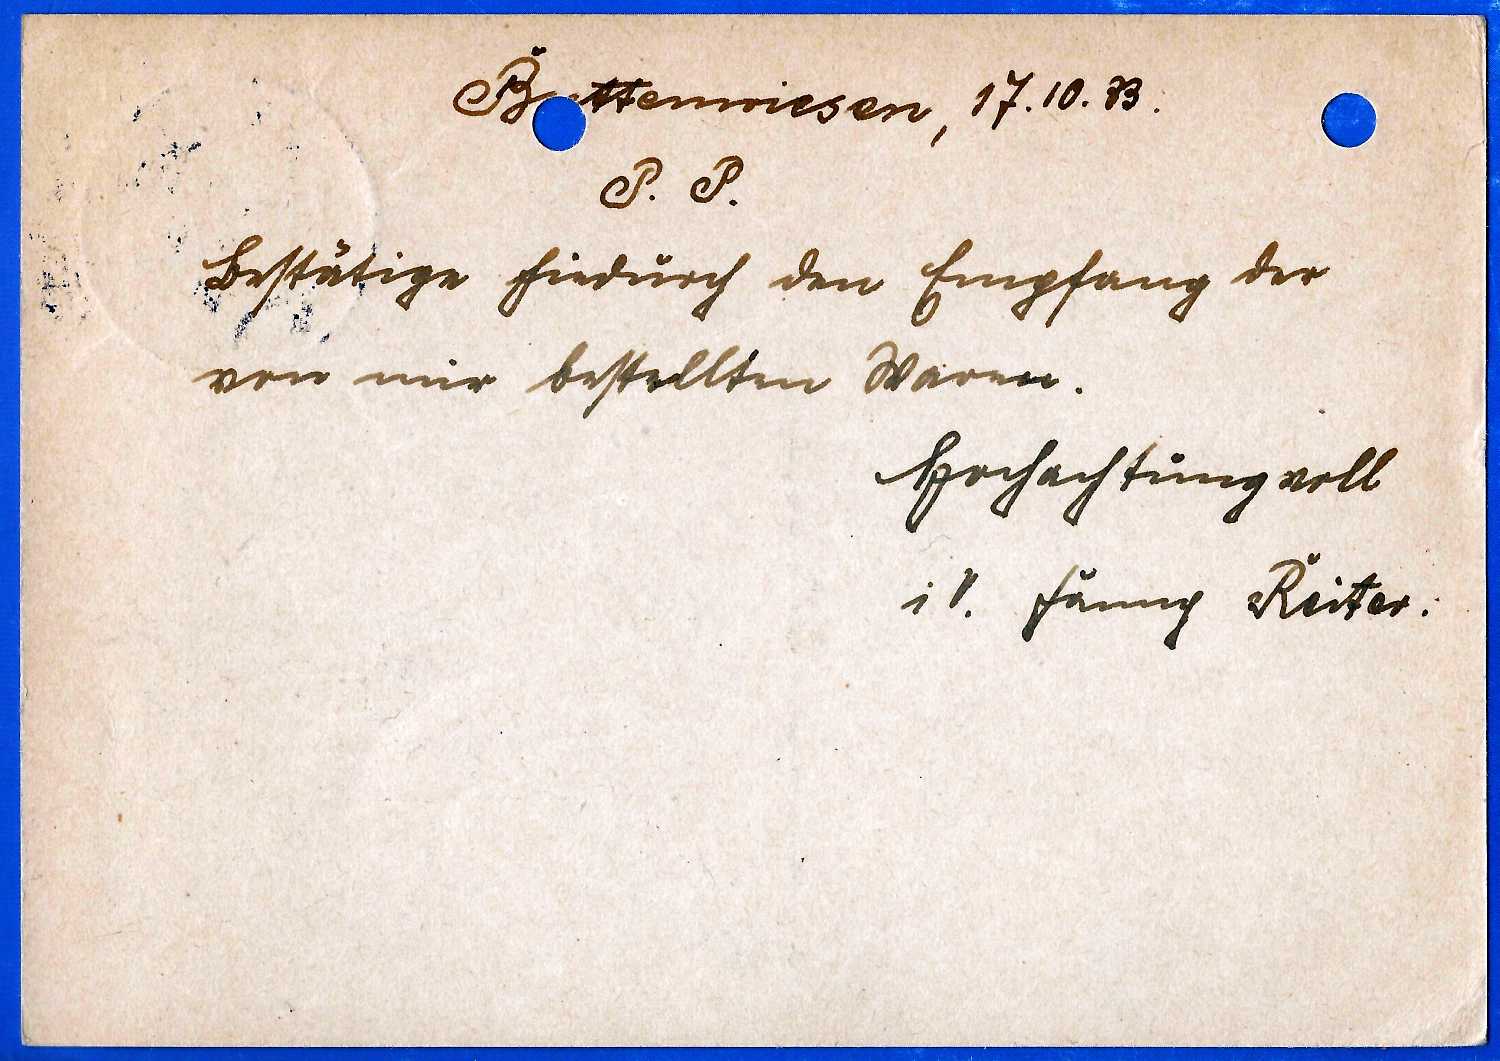 Buttenwiesen, 17.10.33.
P. P.
Bestätige hiedurch den Empfang der
von mir bestellten Waren.
Hochachtungvoll
i V. Fanny Reiter.